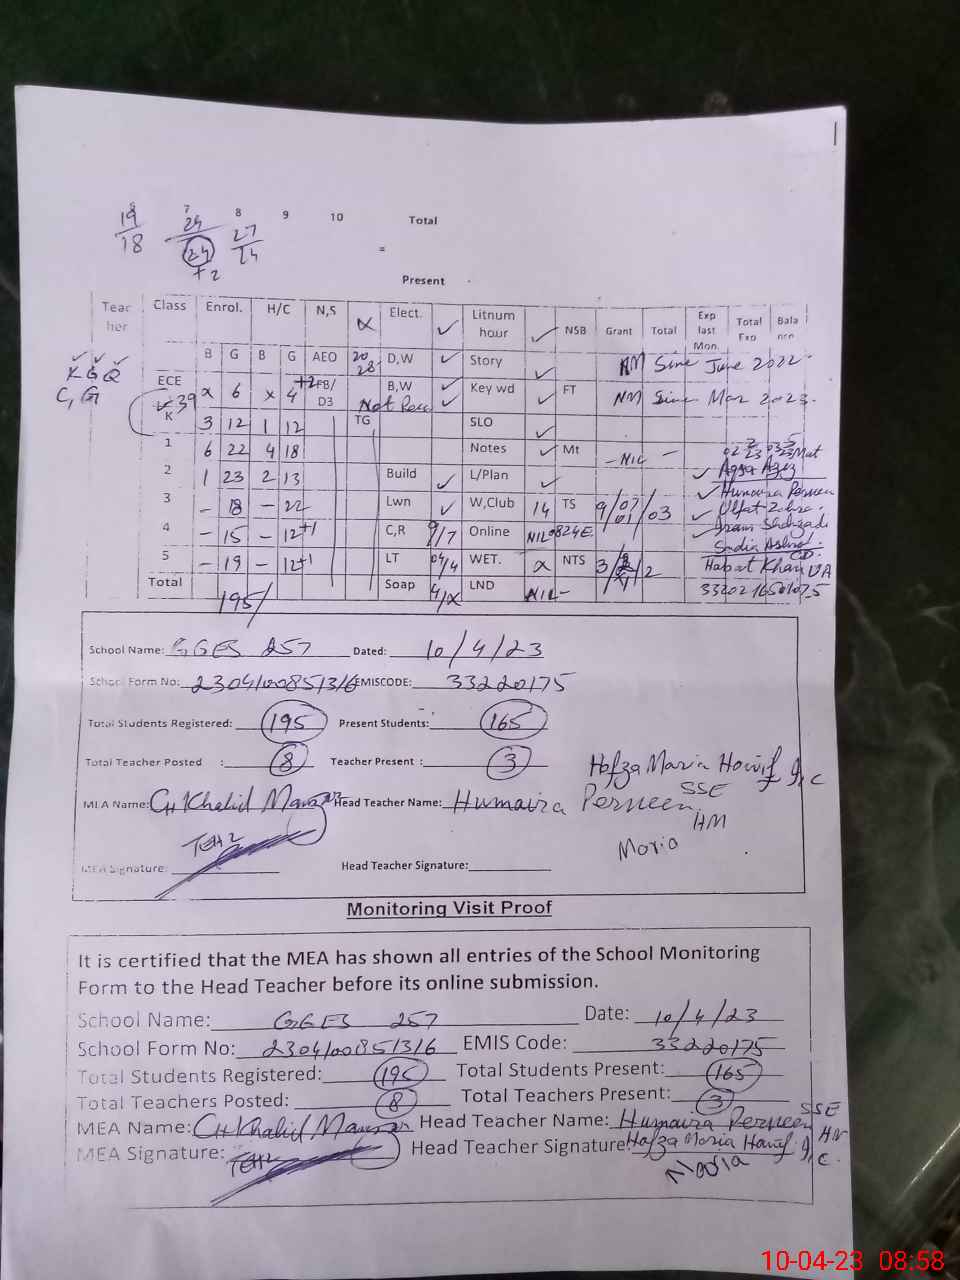 19 7 24 8 27 9 10 Total
18 24 24 =
+2
Present
Teacher Class Enrol. H/C N,S Elect. ✓ Litnum hour ✓ NSB Grant Total Exp last Mon. Total Exp Balance
B G B G AEO 20 28 D,W ✓ Story ✓ NM Sine June 2022
K G Q
C, G
ECE x 6 x 4+2 FB/D3 B,W ✓ Key wd ✓ FT NM Sine Mar 2023
39
K 3 12 1 12 TG SLO ✓
1 6 22 4 18 Notes ✓ Mt -NIL-
2 1 23 2 13 Build ✓ L/Plan ✓
✓ Humaira Perveen
3 - 18 - 22 Lwn ✓ W,Club 14 TS 9/07/01/03 ✓ Ulfat Zahra
4 - 15 - 12+1 C,R 9/7 Online NIL 0824E Iram Shehzadi
Sadia Ashraf
5 - 19 - 12+1 LT 04/4 WET. x NTS Habat Khan
Total 195/ Soap 4/x LND NIL-
School Name: GGES 257 Dated: 10/4/23
School Form No: 2304100851316 EMISCODE: 33220175
Total Students Registered: 195 Present Students: 165
Total Teacher Posted : 8 Teacher Present : 3 Hafza Maria Hanif I/C
MEA Name: CH Khalid Head Teacher Name: Humaira Perveen SSE
HM
Maria
MEA Signature: Head Teacher Signature:
Monitoring Visit Proof
It is certified that the MEA has shown all entries of the School Monitoring
Form to the Head Teacher before its online submission.
School Name: GGES 257 Date: 10/4/23
School Form No: 2304100851316 EMIS Code: 33220175
Total Students Registered: 195 Total Students Present: 165
Total Teachers Posted: 8 Total Teachers Present: 3
MEA Name: CH Khalid Head Teacher Name: Humaira Perveen SSE HM
MEA Signature: Head Teacher Signature: Hafza Maria Hanif I/C
Maria
10-04-23 08:58